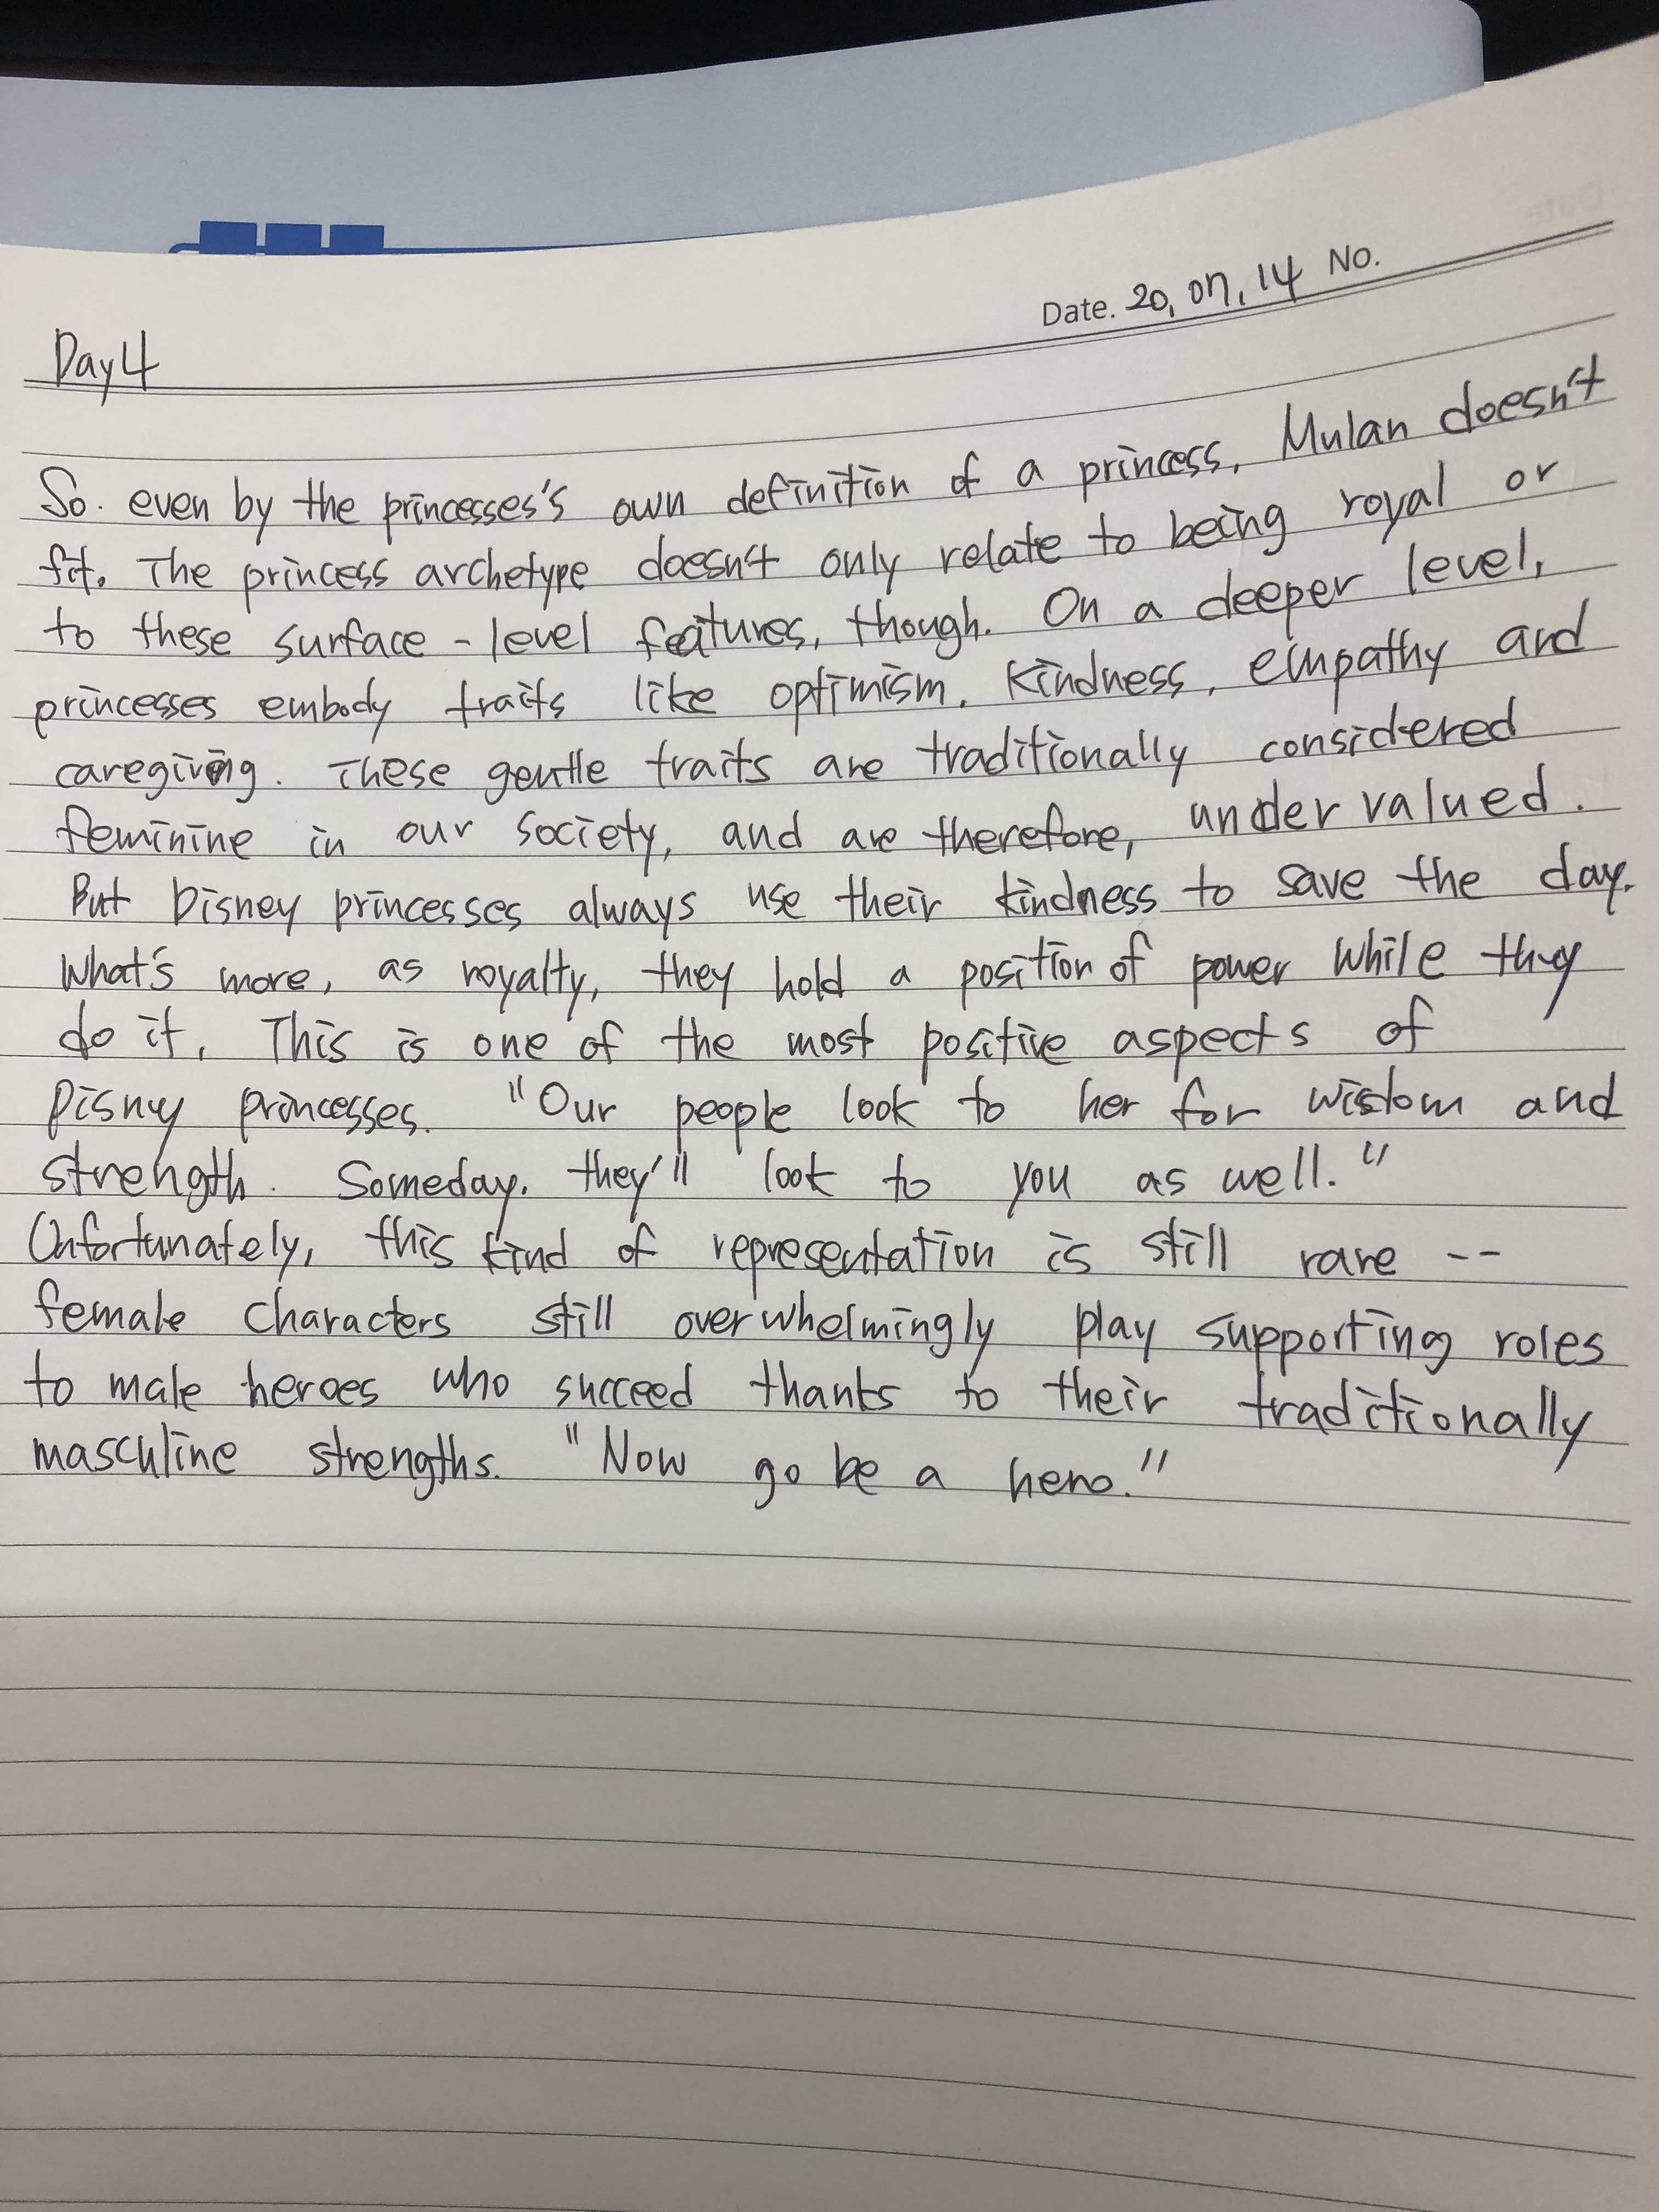 Date. 20, 07, 14 No.
Day 4
So. even by the princesses's own definition of a princess, Mulan doesn't
fit. The princess archetype doesn't only relate to being royal or
to these surface-level features, though. On a deeper level,
princesses embody traits like optimism, kindness, empathy and
caregiving. These gentle traits are traditionally considered
feminine in our society, and are therefore, undervalued.
But Disney princesses always use their kindness to save the day.
What's more, as royalty, they hold a position of power while they
do it. This is one of the most positive aspects of
Disney princesses. "Our people look to her for wisdom and
strength. Someday, they'll look to you as well."
Unfortunately, this kind of representation is still rare --
female characters still overwhelmingly play supporting roles
to male heroes who succeed thanks to their traditionally
masculine strengths. "Now go be a hero."